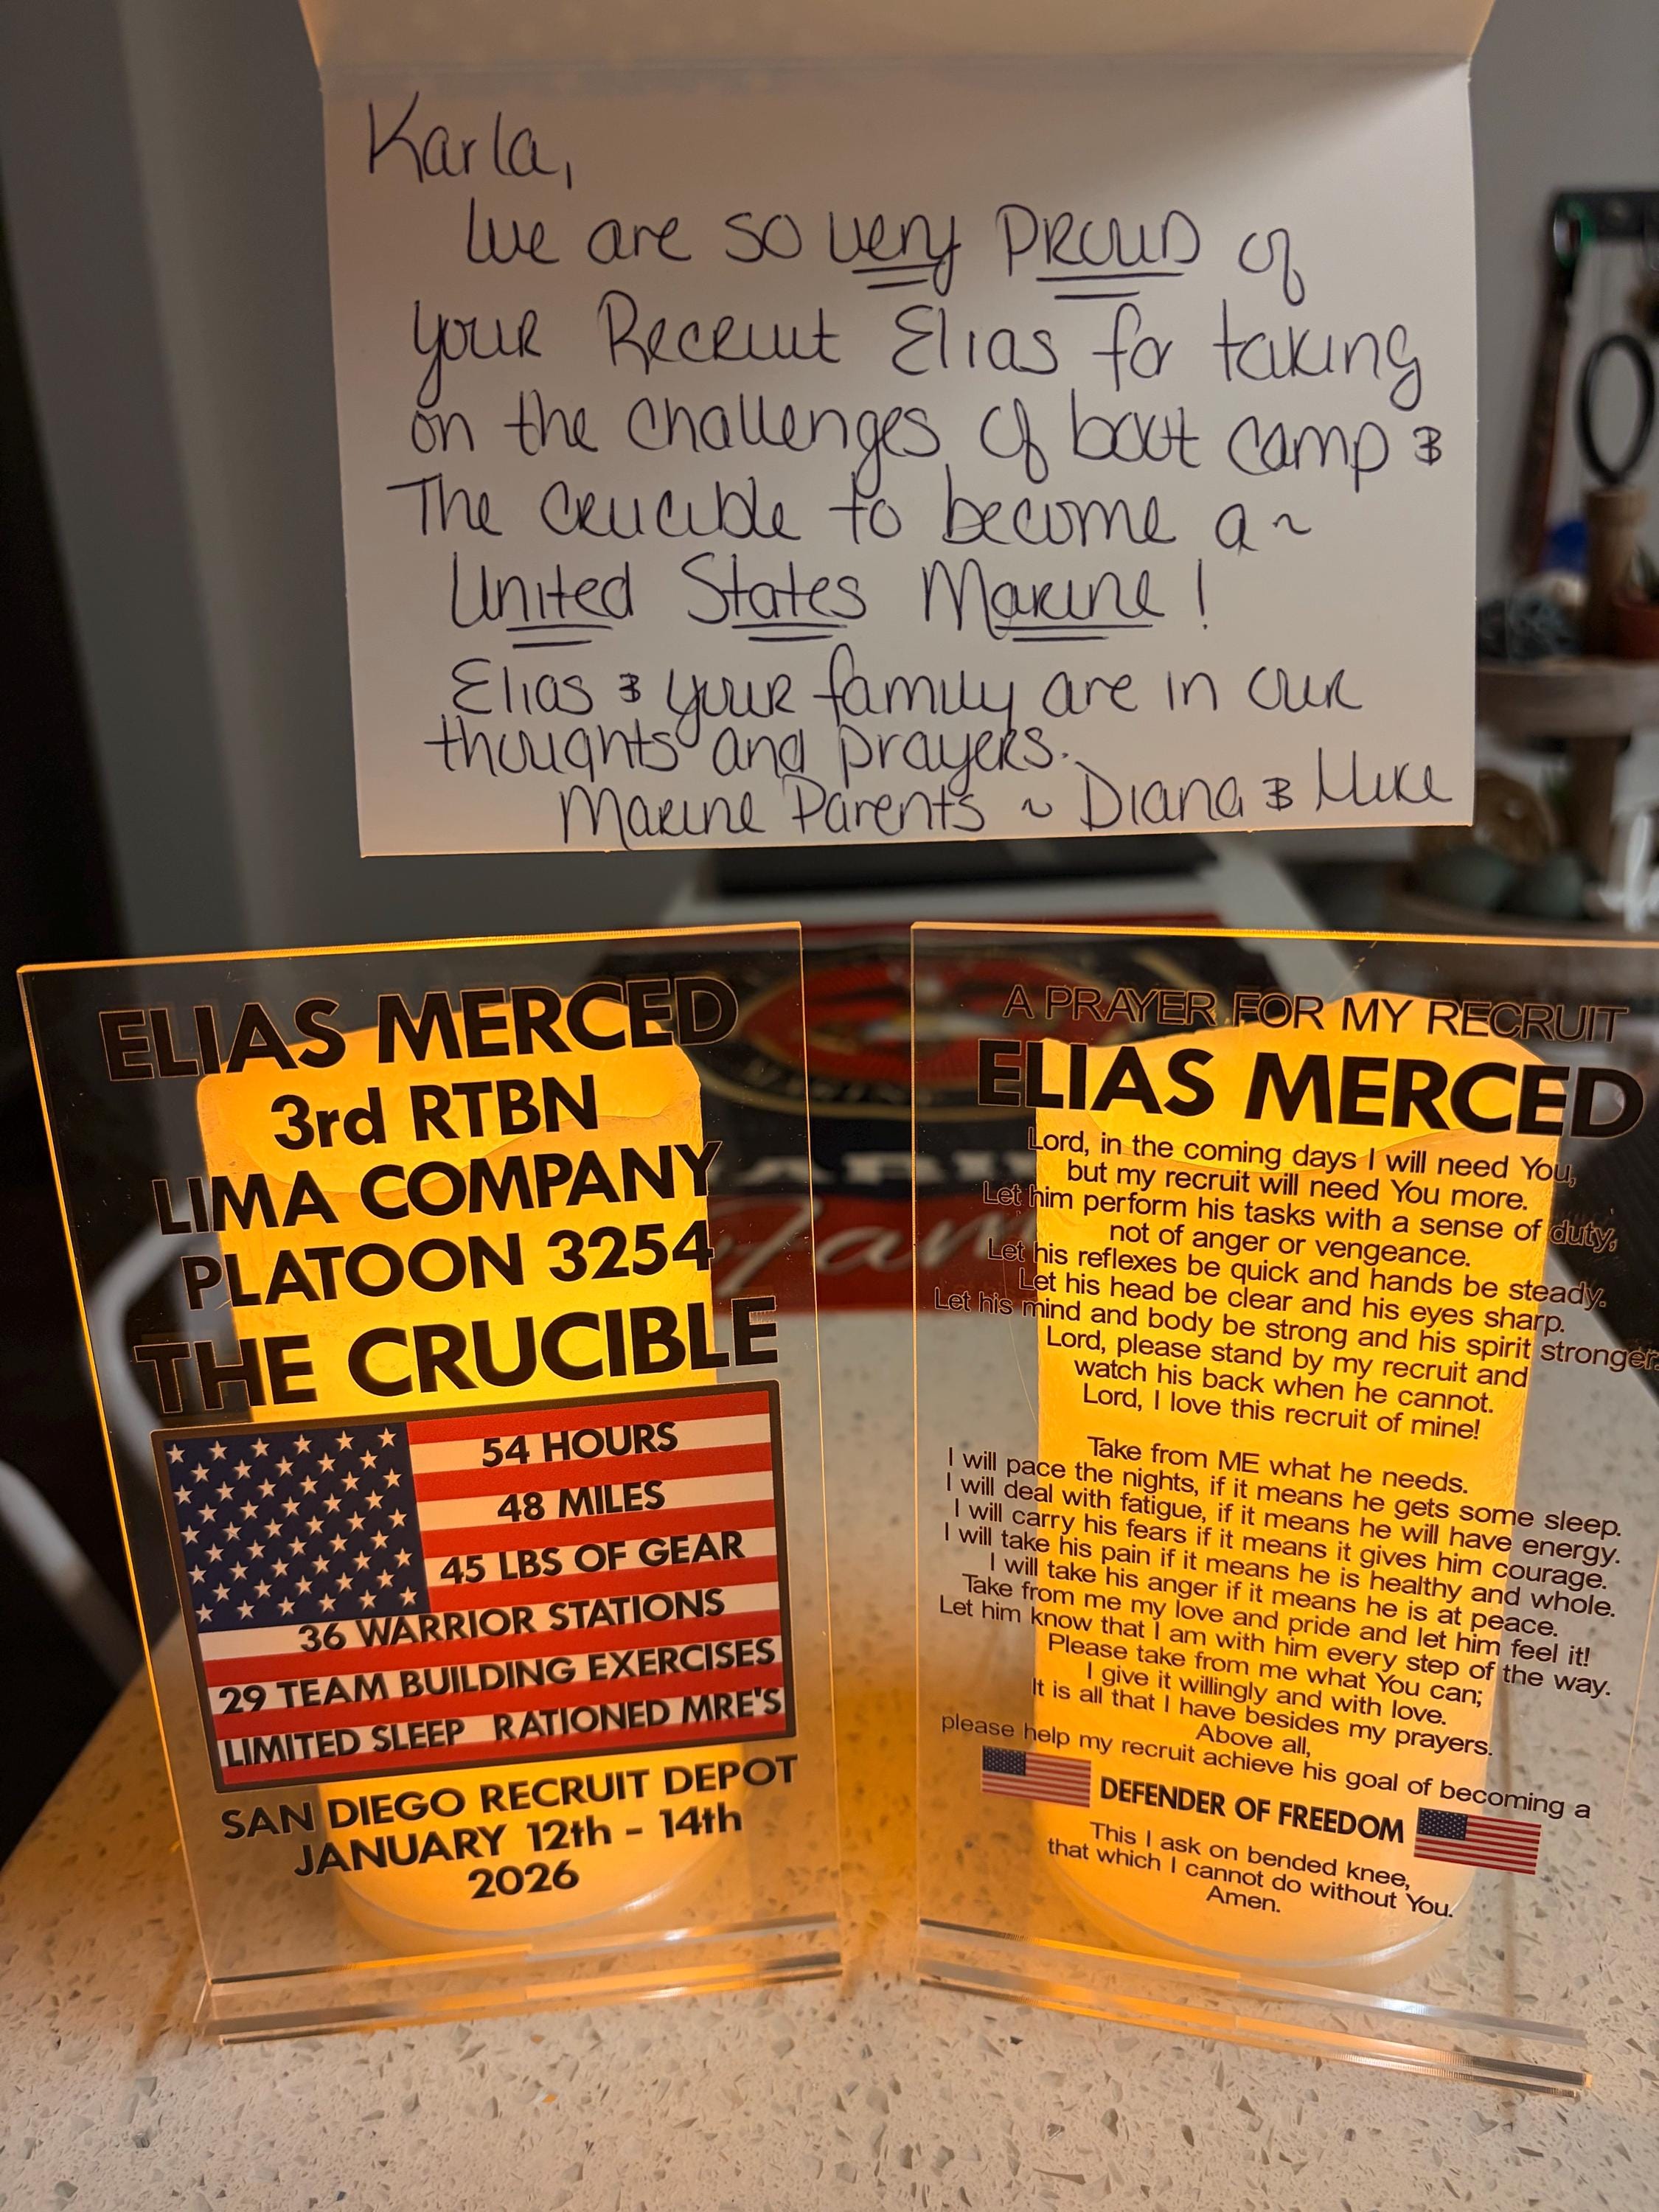 Karla,
We are so very PROUD of
your Recruit Elias for taking
on the challenges of boot camp &
The Crucible to become a ~
United States Marine!
Elias & your family are in our
thoughts and prayers.
Marine Parents ~ Diana & Mike
ELIAS MERCED
3rd RTBN
LIMA COMPANY
PLATOON 3254
THE CRUCIBLE
54 HOURS
48 MILES
45 LBS OF GEAR
36 WARRIOR STATIONS
29 TEAM BUILDING EXERCISES
LIMITED SLEEP RATIONED MRE'S
SAN DIEGO RECRUIT DEPOT
JANUARY 12th - 14th
2026
A PRAYER FOR MY RECRUIT
ELIAS MERCED
Lord, in the coming days I will need You,
but my recruit will need You more.
Let him perform his tasks with a sense of duty,
not of anger or vengeance.
Let his reflexes be quick and hands be steady.
Let his head be clear and his eyes sharp.
Let his mind and body be strong and his spirit stronger.
Lord, please stand by my recruit and
watch his back when he cannot.
Lord, I love this recruit of mine!
Take from ME what he needs.
I will pace the nights, if it means he gets some sleep.
I will deal with fatigue, if it means he will have energy.
I will carry his fears if it means it gives him courage.
I will take his pain if it means he is healthy and whole.
I will take his anger if it means he is at peace.
Take from me my love and pride and let him feel it!
Let him know that I am with him every step of the way.
Please take from me what You can;
I give it willingly and with love.
It is all that I have besides my prayers.
Above all,
please help my recruit achieve his goal of becoming a
DEFENDER OF FREEDOM
This I ask on bended knee,
that which I cannot do without You.
Amen.